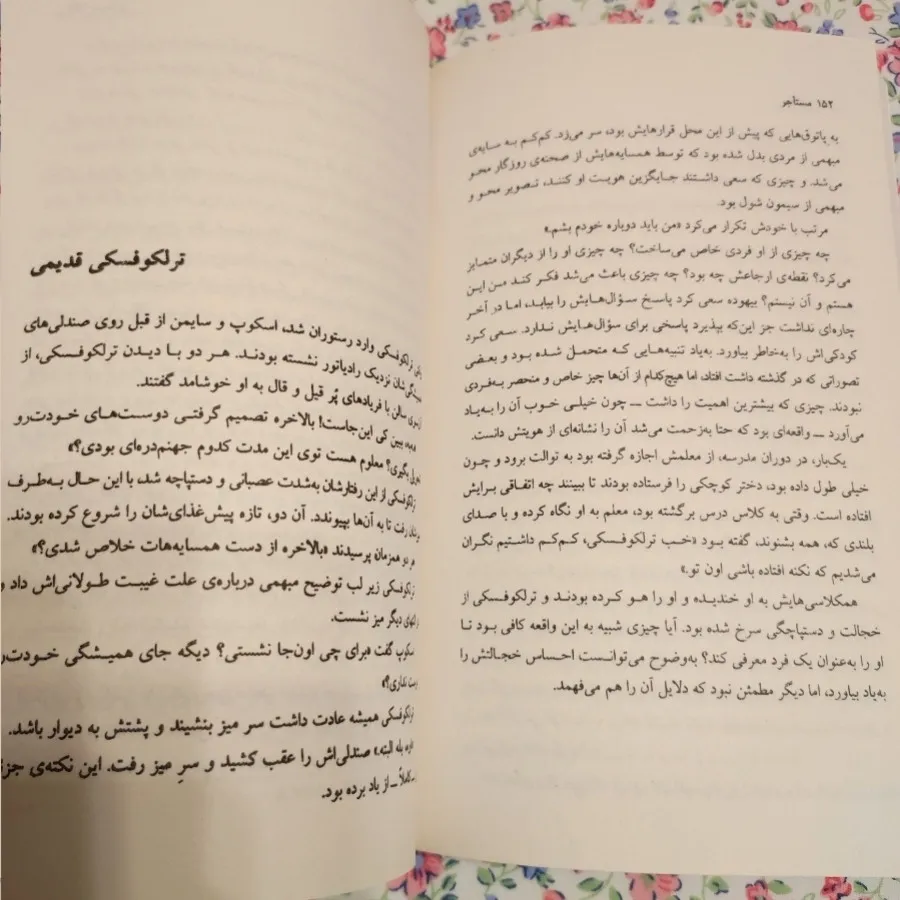 ۱۵۲ مستاجر
به پاتوق‌هایی که پیش از این محل قرارهایش بود، سر می‌زد. کم‌کم به سایه‌ی
مبهمی از مردی بدل شده بود که توسط همسایه‌هایش از صحنه‌ی روزگار محو
می‌شد. و چیزی که سعی داشتند جایگزین هویت او کنند، تصویر محو و
مبهمی از سیمون شول بود.
مرتب با خودش تکرار می‌کرد «من باید دوباره خودم بشم.»
چه چیزی از او فردی خاص می‌ساخت؟ چه چیزی او را از دیگران متمایز
می‌کرد؟ نقطه‌ی ارجاعش چه بود؟ چه چیزی باعث می‌شد فکر کند من این
هستم و آن نیستم؟ بیهوده سعی کرد پاسخ سؤال‌هایش را بیابد، اما در آخر
چاره‌ای نداشت جز این‌که بپذیرد پاسخی برای سؤال‌هایش ندارد. سعی کرد
کودکی‌اش را به‌خاطر بیاورد. به‌یاد تنبیه‌هایی که متحمل شده بود و بعضی
تصوراتی که در گذشته داشت افتاد، اما هیچ‌کدام از آن‌ها چیز خاص و منحصر به‌فردی
نبودند. چیزی که بیشترین اهمیت را داشت ــ چون خیلی خوب آن را به‌یاد
می‌آورد ــ واقعه‌ای بود که حتا به‌زحمت می‌شد آن را نشانه‌ای از هویتش دانست.
یک‌بار، در دوران مدرسه، از معلمش اجازه گرفته بود به توالت برود و چون
خیلی طول داده بود، دختر کوچکی را فرستاده بودند تا ببینند چه اتفاقی برایش
افتاده است. وقتی به کلاس درس برگشته بود، معلم به او نگاه کرده و با صدای
بلندی که، همه بشنوند، گفته بود «خب ترلکوفسکی، کم‌کم داشتیم نگران
می‌شدیم که نکنه افتاده باشی اون تو.»
همکلاسی‌هایش به او خندیده و او را هو کرده بودند و ترلکوفسکی از
خجالت و دستپاچگی سرخ شده بود. آیا چیزی شبیه به این واقعه کافی بود تا
او را به‌عنوان یک فرد معرفی کند؟ به‌وضوح می‌توانست احساس خجالتش را
به‌یاد بیاورد، اما دیگر مطمئن نبود که دلایل آن را هم می‌فهمد.
ترلکوفسکی قدیمی
ترلکوفسکی وارد رستوران شد، اسکوپ و سایمن از قبل روی صندلی‌های
نزدیک رادیاتور نشسته بودند. هر دو با دیدن ترلکوفسکی، از
سالن با فریادهای پُر قیل و قال به او خوشامد گفتند.
ببین کی این‌جاست! بالاخره تصمیم گرفتی دوست‌های خودت‌رو
بگیری؟ معلوم هست توی این مدت کدوم جهنم‌دره‌ای بودی؟»
ترلکوفسکی از این رفتارشان به‌شدت عصبانی و دستپاچه شد، با این حال به‌طرف
رفت تا به آن‌ها بپیوندد. آن دو، تازه پیش‌غذای‌شان را شروع کرده بودند.
هر دو همزمان پرسیدند «بالاخره از دست همسایه‌هات خلاص شدی؟»
ترلکوفسکی زیر لب توضیح مبهمی درباره‌ی علت غیبت طولانی‌اش داد و
دیگر میز نشست.
اسکوپ گفت «برای چی اون‌جا نشستی؟ دیگه جای همیشگی خودت‌رو
نداری؟»
ترلکوفسکی همیشه عادت داشت سر میز بنشیند و پشتش به دیوار باشد.
بله البته.» صندلی‌اش را عقب کشید و سرِ میز رفت. این نکته‌ی
کاملاً ــ از یاد برده بود.